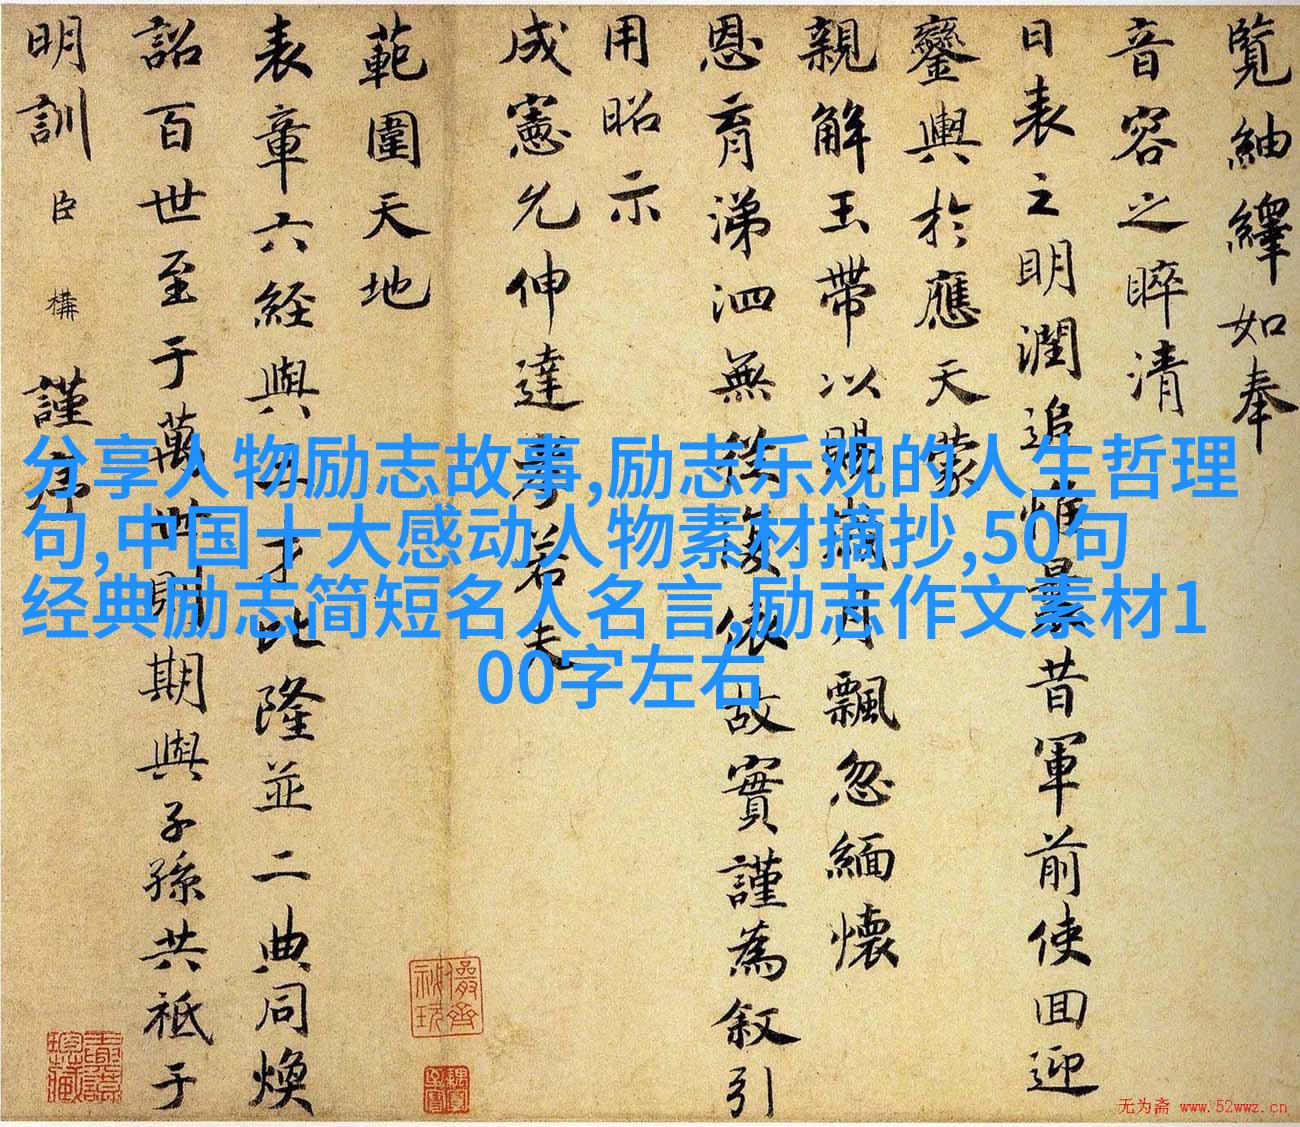 覽紬繹如奉
音容之睟清
日表之明潤追惟曩昔軍前使回迎
鑾輿於應天蒙
親解玉帶以賜擕月飄忽緬懷
恩育涕泗無從後依故實謹為叙引
用昭示
成憲允伸達孝若夫
範圍天地
表章六經與三才比隆並二典同煥
詔百世至于萬世則期與子孫共祗于
明訓臣構謹序
分享人物励志故事,励志乐观的人生哲理
句,中国十大感动人物素材摘抄,50句
经典励志简短名人名言,励志作文素材1
00字左右
无为斋 www.52wwz.cn